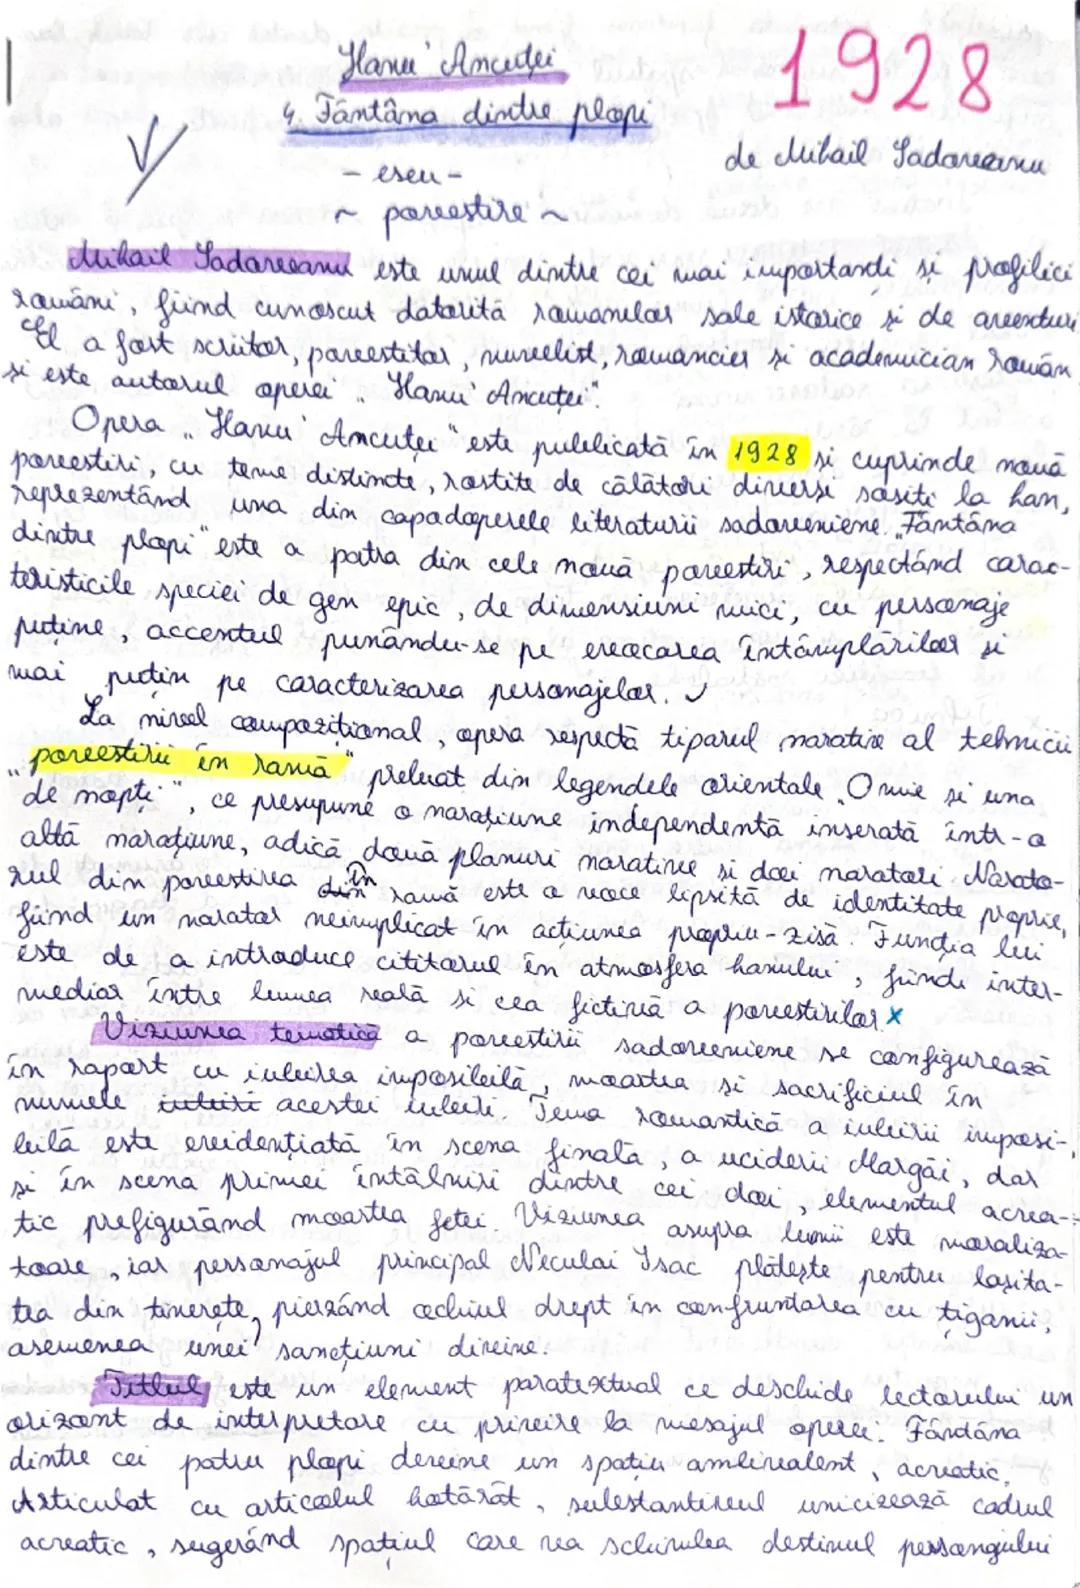 Hanu' Ancuței
1928
4. Fântâna dintre plopi
de Mihail Sadoveanu
- eseu -
~ povestire ~
Mihail Sadoveanu este unul dintre cei mai importanti si profilici
români, fiind cunoscut datorită romanelor sale istorice și de aventuri
El a fost scriitor, povestitor, nuvelist, romancier și academician român
și este autorul operei „Hanu' Ancuței".
Opera „Hanu' Ancuței" este publicată în 1928 și cuprinde nouă
povestiri, cu teme distincte, rostite de călători diverși sosiți la han,
reprezentând una din capodoperele literaturii sadoveniene. „Fântâna
dintre plopi" este a patra din cele nouă povestiri, respectând carac-
teristicile speciei de gen epic, de dimensiuni mici, cu personaje
puține, accentul punându-se pe evocarea întâmplărilor și
mai puțin pe caracterizarea personajelor.
La nivel compozițional, opera respectă tiparul narativ al tehnicii
„povestirii în ramă" preluat din legendele orientale „O mie și una
de nopți", ce presupune o narațiune independentă inserată într-o
altă narațiune, adică două planuri narative și doi naratori. Narato-
rul din povestirea în ramă este o voce lipsită de identitate proprie,
fiind un narator neimplicat în acțiunea propriu-zisă. Funcția lui
este de a introduce cititorul în atmosfera hanului, fiind inter-
mediar între lumea reală și cea fictivă a povestirilor. x
Viziunea tematică a povestirii sadoveniene se configurează
în raport cu iubirea imposibilă, moartea și sacrificiul în
numele iubirii acestei iubiri. Tema romantică a iubirii imposi-
bilă este evidențiată în scena finală, a uciderii Margăi, dar
și în scena primei întâlniri dintre cei doi, elementul acva-
tic prefigurând moartea fetei. Viziunea asupra lumii este moraliza-
toare, iar personajul principal Neculai Isac plătește pentru lașita-
tea din tinerețe, pierzând ochiul drept în confruntarea cu țiganii,
asemenea unei sancțiuni divine.
Titlul este un element paratextual ce deschide lectorului un
orizont de interpretare cu privire la mesajul operei. Fântâna
dintre cei patru plopi devine un spațiu ambivalent, acvatic.
Articulat cu articolul hotărât, substantivul unicizează cadrul
acvatic, sugerând spațiul care va schimba destinul personajului